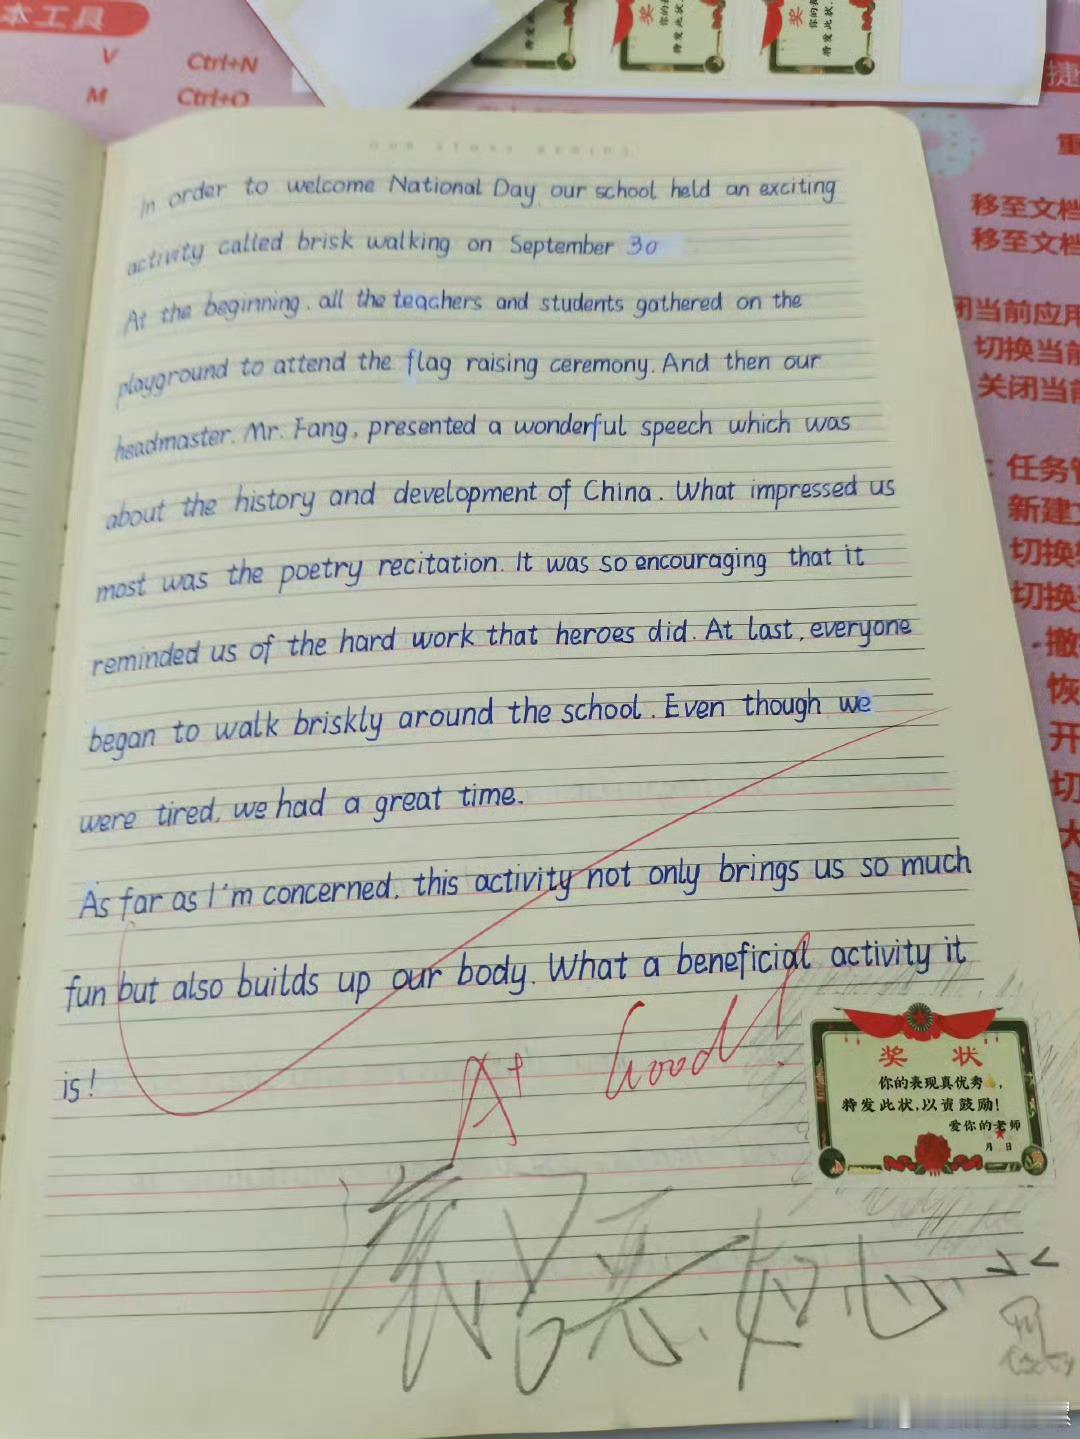 本工具
V Ctrl+N
M Ctrl+O
奖
你的表
特发此状,
奖
你的表
特发此状,
捷
移至文档
移至文档
闭当前应用
切换当前
关闭当前
任务管
新建
切换
切换
撤
恢
开
切
大
In order to welcome National Day our school held an exciting
activity called brisk walking on September 30
At the beginning, all the teachers and students gathered on the
playground to attend the flag raising ceremony. And then our
headmaster, Mr. Fang, presented a wonderful speech which was
about the history and development of China. What impressed us
most was the poetry recitation. It was so encouraging that it
reminded us of the hard work that heroes did. At last, everyone
began to walk briskly around the school. Even though we
were tired, we had a great time.
As far as I'm concerned, this activity not only brings us so much
fun but also builds up our body. What a beneficial activity it
is!
A+ Good!
奖 状
你的表现真优秀,
特发此状,以资鼓励!
爱你的老师
月 日